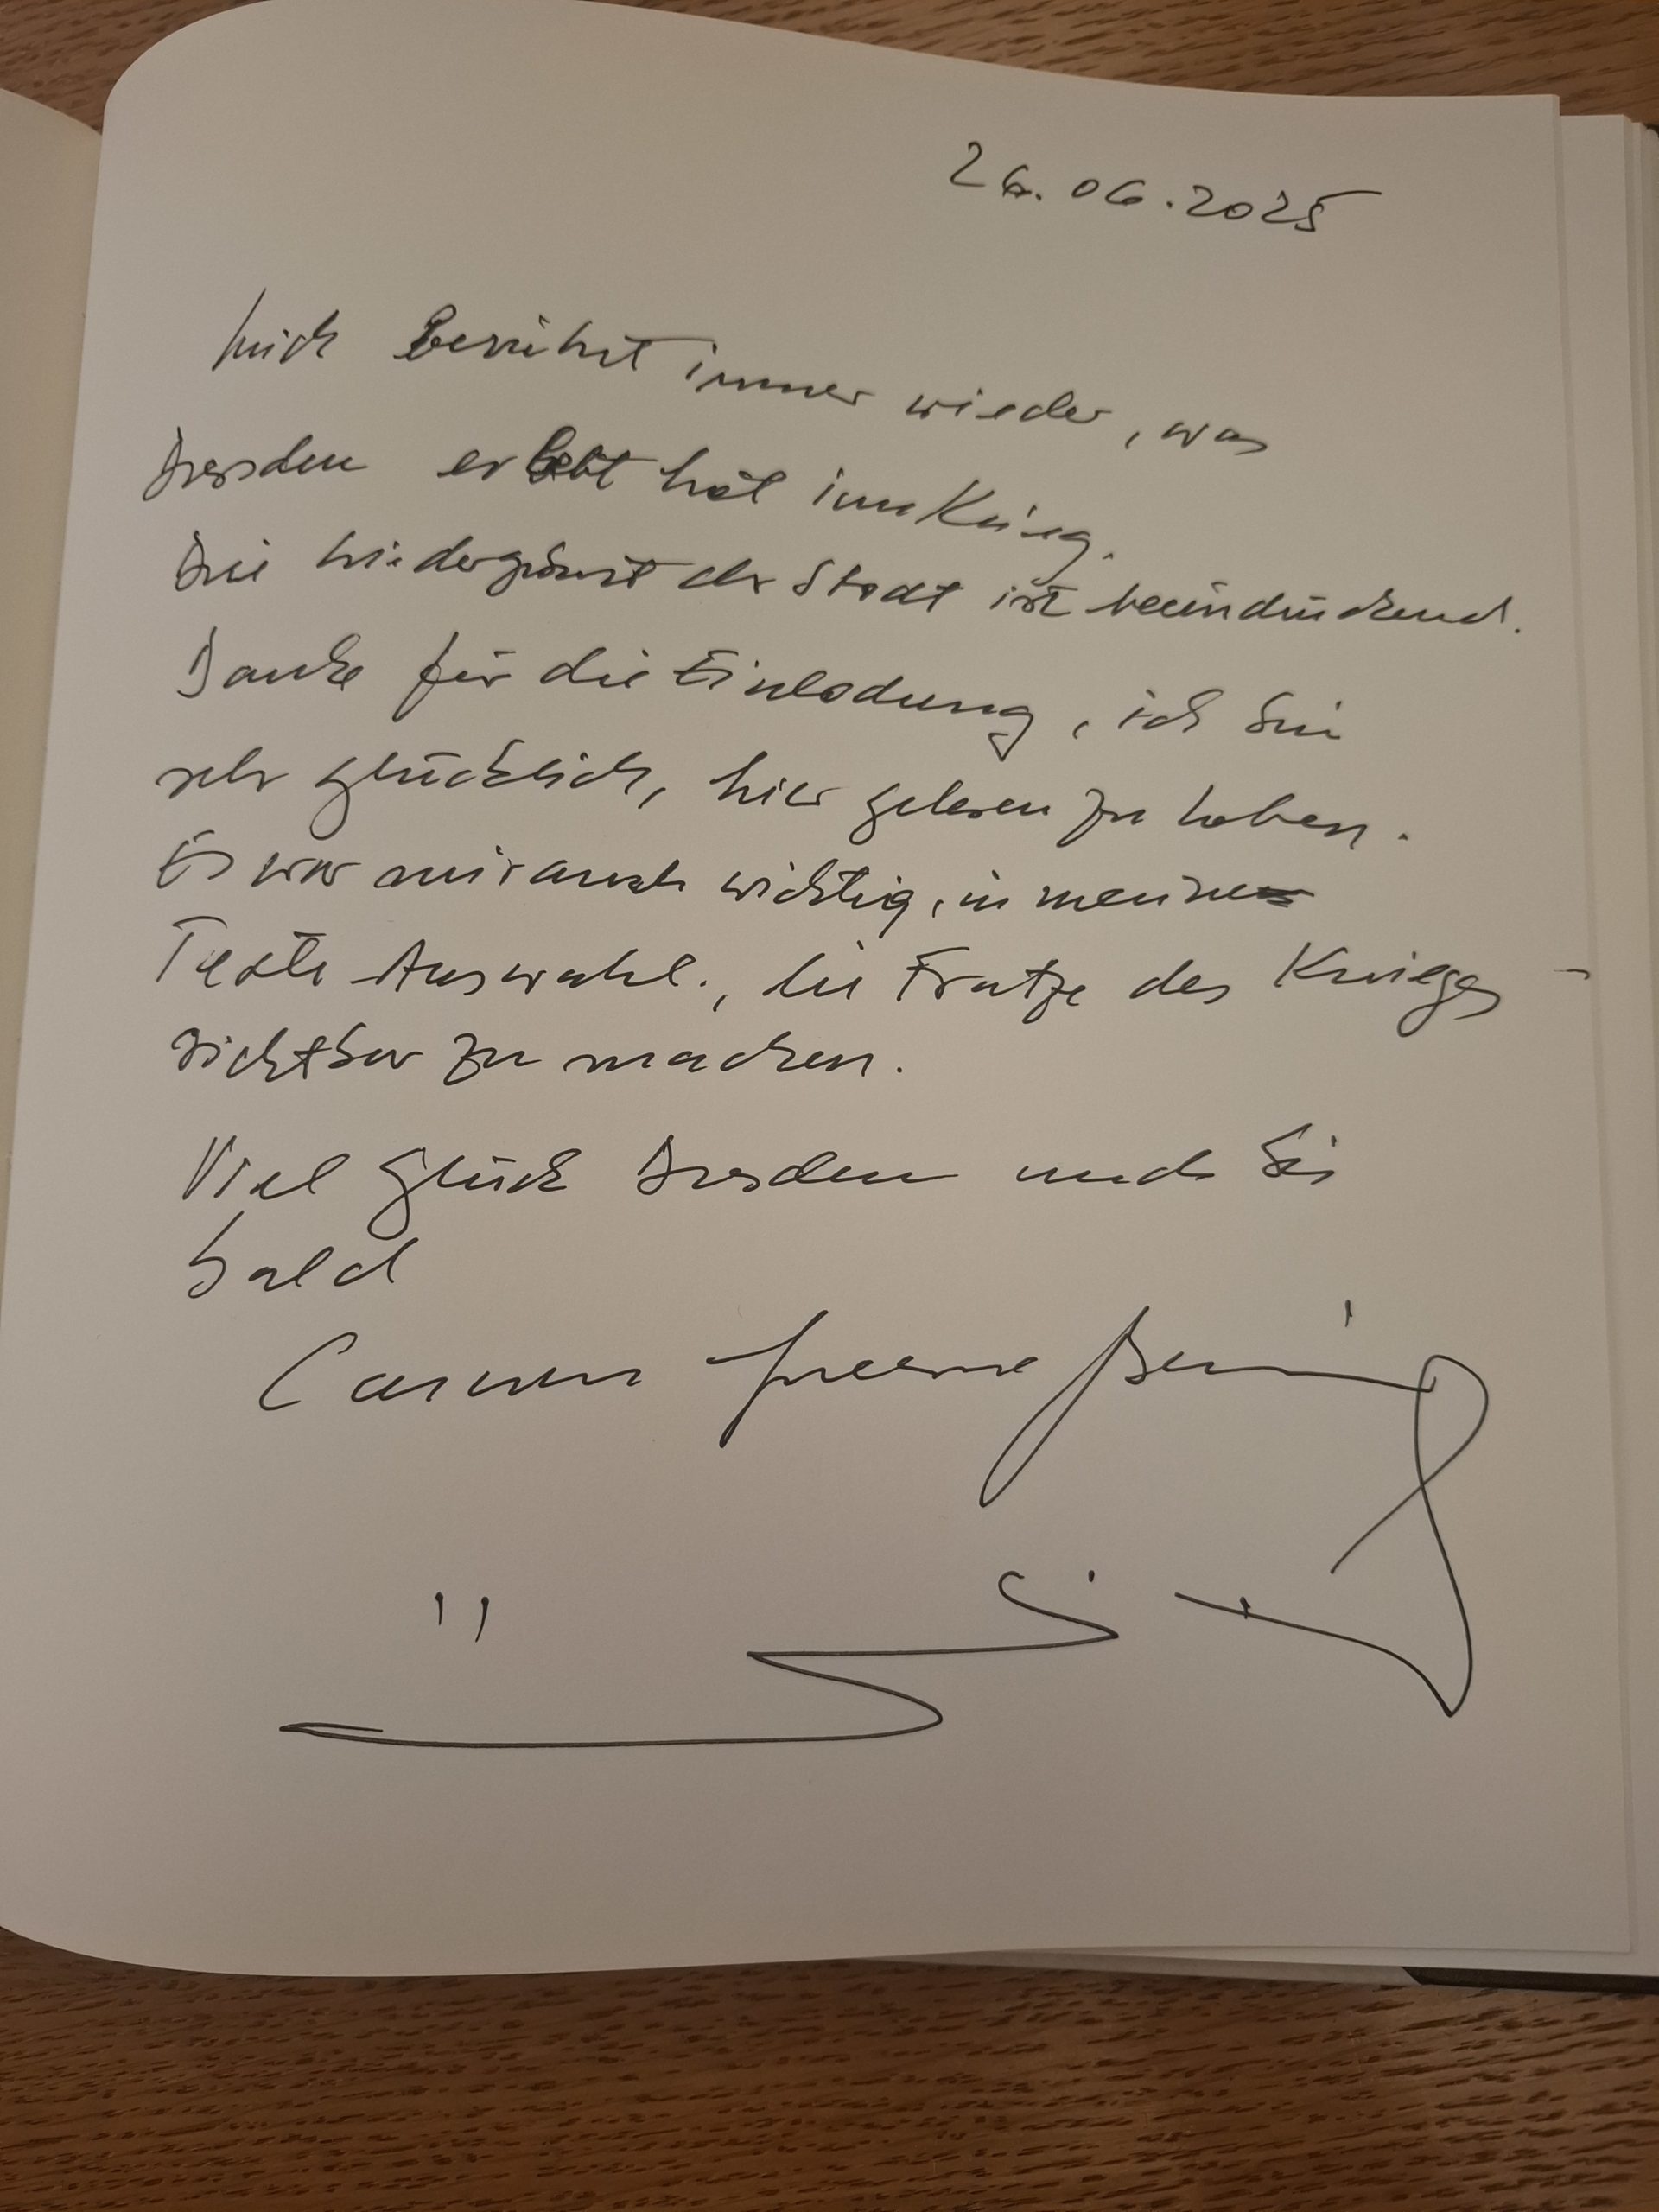 26.06.2025
Mich berührt immer wieder, was
Dresden erlebt hat im Krieg.
Die Wiedergeburt der Stadt ist beeindruckend.
Danke für die Einladung, ich bin
sehr glücklich, hier gelesen zu haben.
Es war mir auch wichtig, in meiner
Texte Auswahl, die Fratze des Krieges
sichtbar zu machen.
Viel Glück Dresden und bis
bald
Carmen